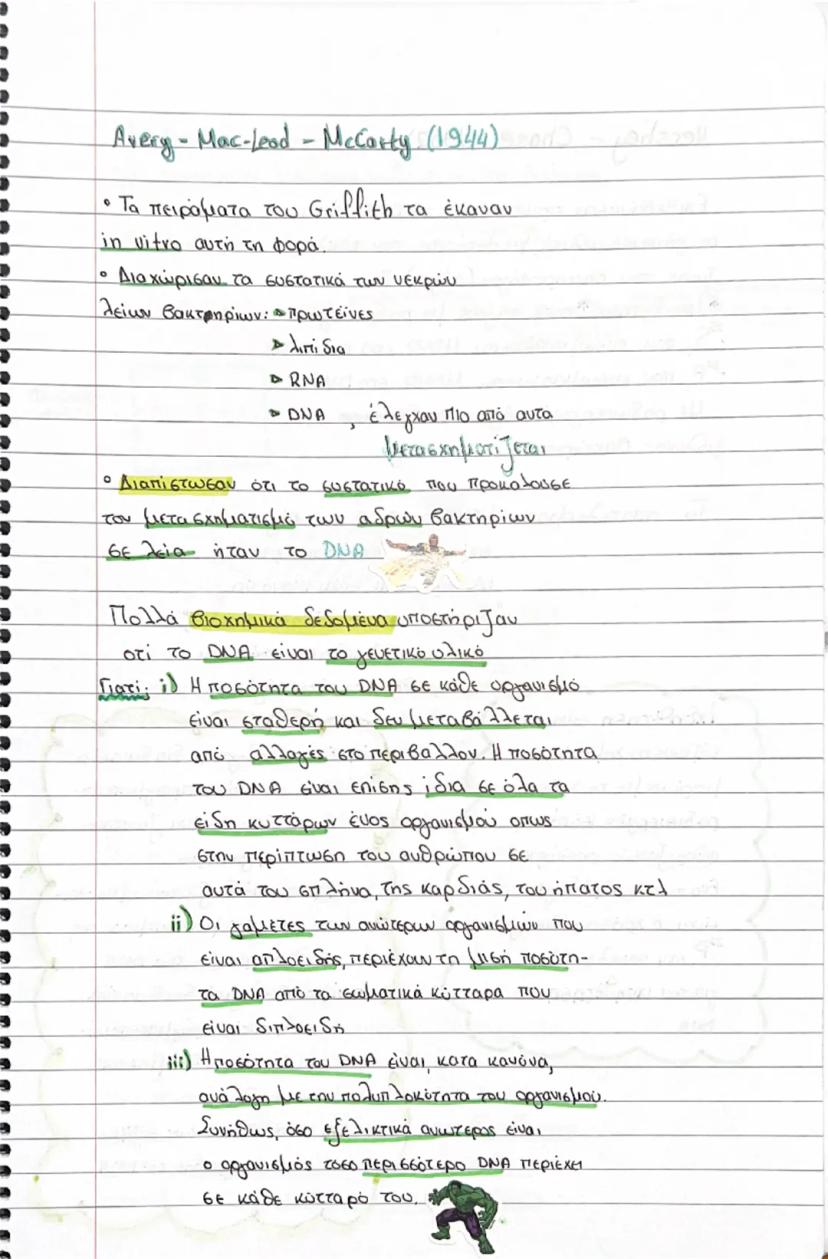 Avery - Mac-Leod - McCarty (1944)
• Τα πειράματα του Griffith τα έκαναν
in vitro αυτή τη φορά.
• Διαχώρισαν τα συστατικά των νεκρών
λείων βακτηρίων: ▸ πρωτεΐνες
▸ λιπίδια
▸ RNA
▸ DNA , έλεγχαν πιο από αυτα
μετασχηματίζεται
• Διαπίστωσαν ότι το συστατικό που προκαλούσε
τον μετασχηματισμό των αδρών βακτηρίων
σε λεία ήταν το DNA
Πολλά βιοχημικά δεδομένα υποστήριζαν
οτί το DNA είναι το γενετικό υλικό
Γιατί: i) Η ποσότητα του DNA σε κάθε οργανισμό
είναι σταθερή και δεν μεταβάλλεται
από αλλαγές στο περιβάλλον. Η ποσότητα
του DNA είναι επίσης ίδια σε όλα τα
είδη κυττάρων ένος οργανισμού οπως
στην περίπτωση του ανθρώπου σε
αυτά του σπλήνα, της καρδιάς, του ήπατος κτλ
ii) Οι γαμέτες των ανώτερων οργανισμών που
είναι απλοειδής, περιέχουν τη μισή ποσότη-
τα DNA από τα σωματικά κύτταρα που
είναι διπλοειδή
iii) Η ποσότητα του DNA είναι, κατα κανόνα,
ανάλογη με την πολυπλοκότητα του οργανισμού.
Συνήθως, όσο εξελικτικά ανωτερος είναι
ο οργανισμός τοσο περισσότερο DNA περιέχει
σε κάθε κύτταρό του.